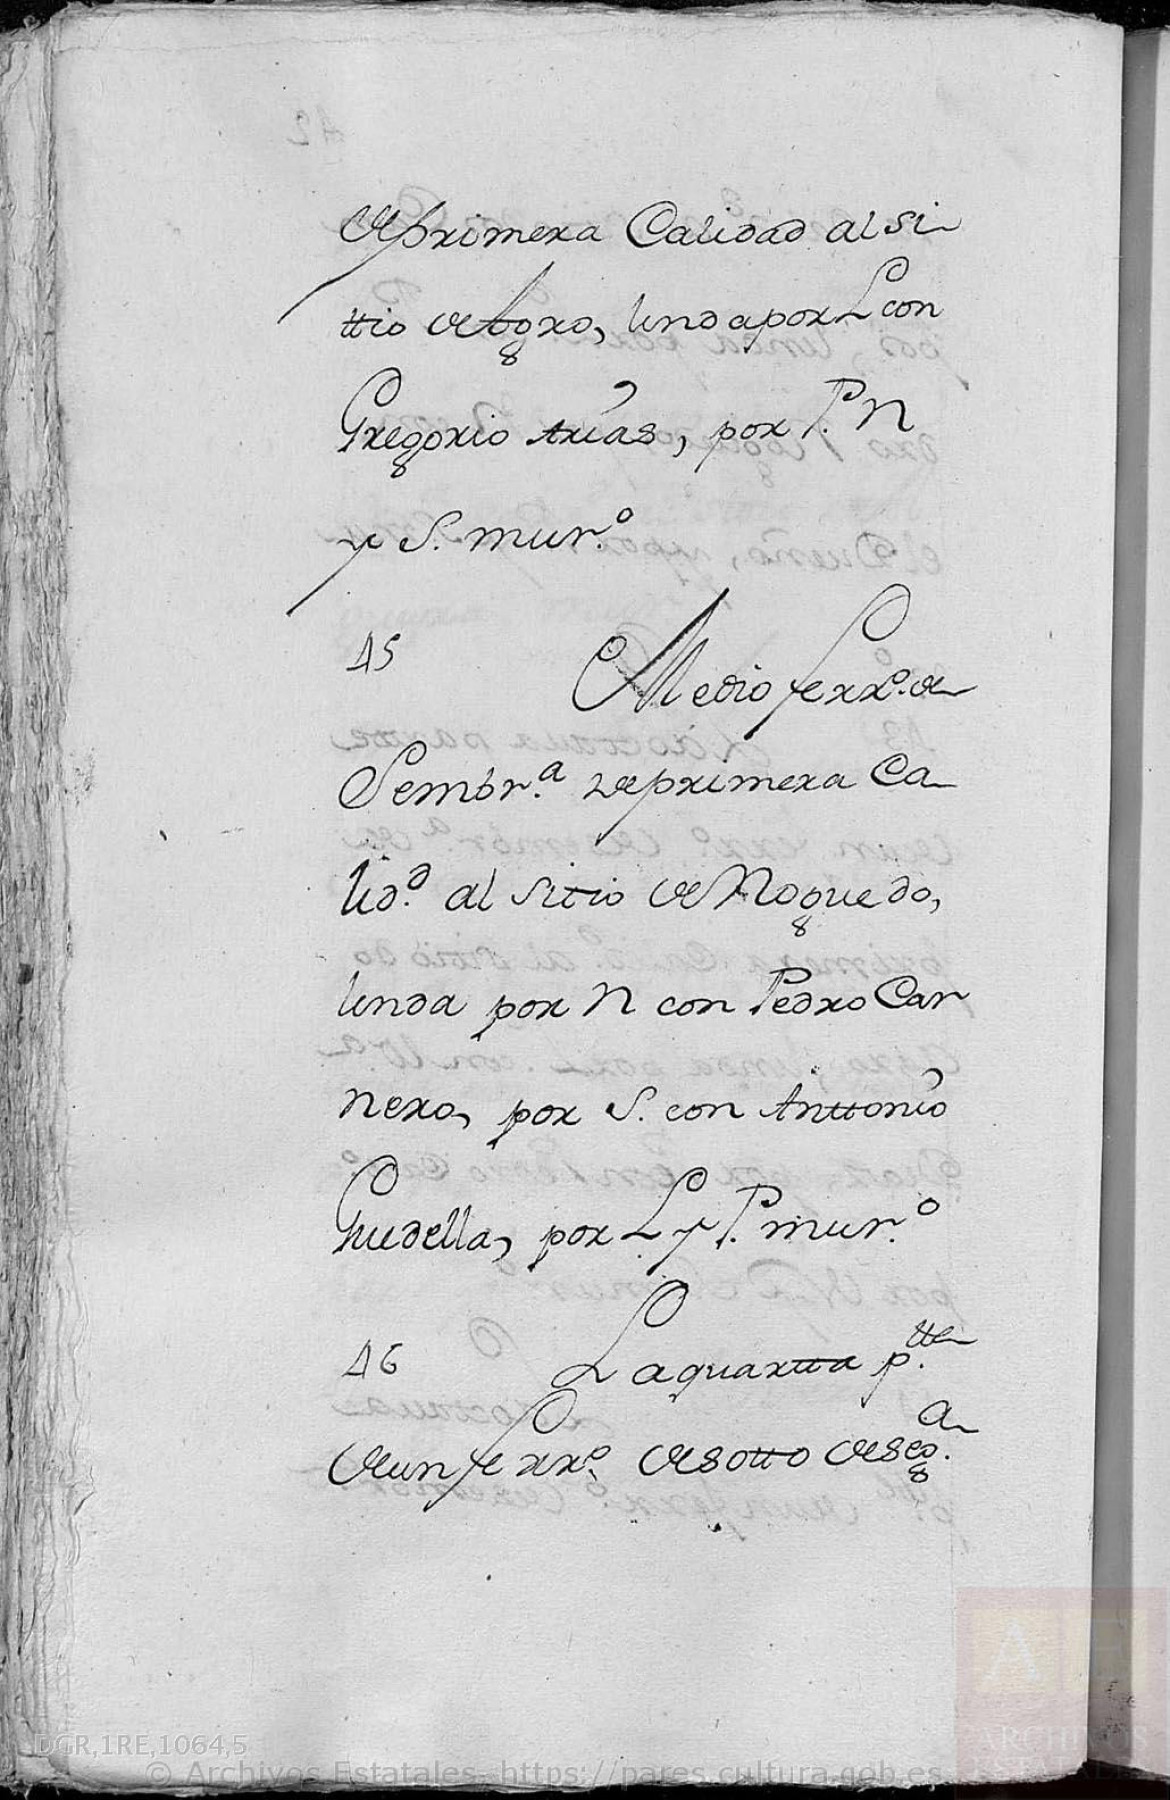 de primera Calidad al si
ttio de Agro, linda por L con
Gregorio Arias, por P. N
y S. mur.º
45 Medio ferr.º de
Sembr.ª de primera Ca
lid.d al sitio de Noguedo,
linda por N con Pedro Car
nero, por S. con Anttonio
Gudella, por L y P. mur.º
46 La quartta p.tte
de un ferr.º de sotto de seg.a
DGR,1RE,1064,5
© Archivos Estatales- https://pares.cultura.gob.es
AE
ARCHIVOS
ESTATALES